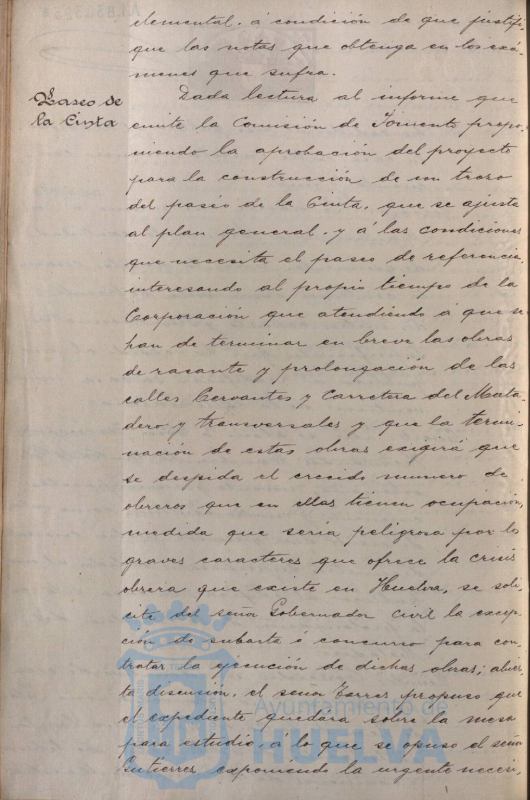 elemental. á condición de que justifi-
que las notas que obtenga en los exá-
menes que sufra.
Paseo de
la Cinta
Dada lectura al informe que
emite la Comisión de Fomento propo-
niendo la aprobación del proyecto
para la construcción de un trozo
del paseo de la Cinta, que se ajusta
al plan general. y á las condiciones
que necesita el paseo de referencia,
interesando al propio tiempo de la
Corporación que atendiendo á que se
han de terminar en breve las obras
de rasante y prolongación de las
calles Cervantes y Carretera del Mata-
dero y transversales y que la termi-
nación de estas obras exigirá que
se despida el crecido numero de
obreros que en ellas tienen ocupación,
medida que sería peligrosa por los
graves caracteres que ofrece la crisis
obrera que existe en Huelva, se soli-
cite del señor Gobernador Civil la excep-
ción de subasta ó concurso para con-
tratar la ejecución de dichas obras; abier-
ta discusión, el señor Terres propuso que
el expediente quedara sobre la mesa
para estudio, á lo que se opuso el señor
Gutierres exponiendo la urgente necesi-
Ayuntamiento de
HUELVA